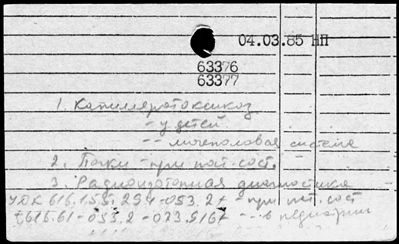 04.03.85 НП
63376
63377
1. Капилляротоксикоз
- у детей
- - мочеполовая система
2. Почки - при пат. сост.
3. Радиоизотопная диагностика
УДК 616.155.294-053.2 + - при пат. сост
+616.61-053.2-073.916 - - в педиатрии